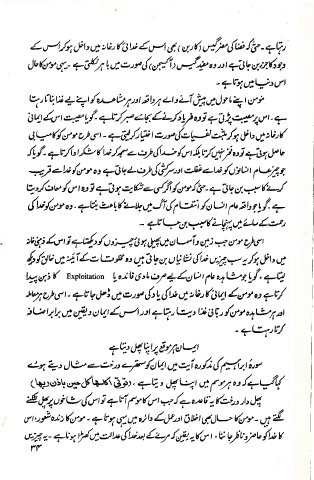 رہتا ہے۔ حتیٰ کہ فضا کی مضر گیس (کاربن) بھی اس کے خدائی کارخانہ میں داخل ہو کر اس کے
وجود کا جزء بن جاتی ہے اور وہ مفید گیس (آکسیجن) کی صورت میں باہر نکلتی ہے، یہی مومن کا حال
اس دنیا میں ہوتا ہے۔
مومن اپنے ماحول میں پیش آنے والے ہر واقعہ اور ہر مشاہدہ کو اپنے لیے غذا بناتا رہتا
ہے۔ اس پر مصیبت پڑتی ہے تو وہ فریاد کرنے کے بجائے صبر کرتا ہے۔ گویا مصیبت اس کے ایمانی
کارخانہ میں داخل ہو کر مثبت نفسیات کی صورت اختیار کر لیتی ہے۔ اسی طرح مومن کو کامیابی
حاصل ہوتی ہے تو وہ فخر نہیں کرتا بلکہ اس کو خدا کی طرف سے سمجھ کر خدا کا شکر ادا کرتا ہے۔ گویا کہ
جو چیز عام انسانوں کو خدا سے غفلت اور سرکشی کی طرف لے جاتی ہے وہ مومن کو خدا سے قریب
کرنے کا سبب بن جاتی ہے۔ حتی کہ مومن کو اگر کسی سے شکایت ہوتی ہے تو وہ اس کو معاف کر دیتا
ہے۔ گویا جو واقعہ عام انسان کو انتقام کی آگ میں جلانے کا باعث بنتا ہے، وہ مومن کو خدا کی
رحمت کے سایے میں پہنچانے کا سبب بن جاتا ہے۔
اسی طرح مومن جب زمین و آسمان میں پھیلی ہوئی چیزوں کو دیکھتا ہے تو اس کے ذہنی خانہ
میں داخل ہو کر یہ سب چیزیں خدا کی نشانیاں بن جاتی ہیں وہ مخلوقات کے آئینہ میں خالق کو دیکھ
لیتا ہے۔ گویا جو مشاہدہ عام انسان کے لیے صرف مادی فائدہ یا Exploitation کا ذہن پیدا
کرتا ہے وہ مومن کے ایمانی کارخانہ میں خدا کی یاد کی صورت میں ڈھل جاتا ہے۔ اسی طرح ہر معاملہ
اور ہر مشاہدہ مومن کو ربانی غذا دیتا رہتا ہے اور اس کے ایمان و یقین میں برابر اضافہ
کرتا رہتا ہے۔
ایمان ہر موقع پر اپنا پھل دیتا ہے
سورۂ ابراہیم کی مذکورہ آیت میں ایمان کو ستھرے درخت سے مثال دیتے ہوئے
کہا گیا ہے کہ وہ ہر موسم میں اپنا پھل دیتا ہے (تؤتی اکلھا کل حین باذن ربھا)
پھل دار درخت کا یہ قاعدہ ہے کہ جب اس کا موسم آتا ہے تو اس کی شاخوں پر پھل نکلنے
لگتے ہیں۔ مومن کا حال بھی اخلاق اور عمل کے دائرہ میں یہی ہوتا ہے۔ مومن کا زندہ شعور، اس
کا خدا کو حاضر و ناظر جاننا، اس کا یہ یقین کہ مرنے کے بعد خدا کی عدالت میں کھڑا ہونا ہے۔ یہ چیزیں
۳۴